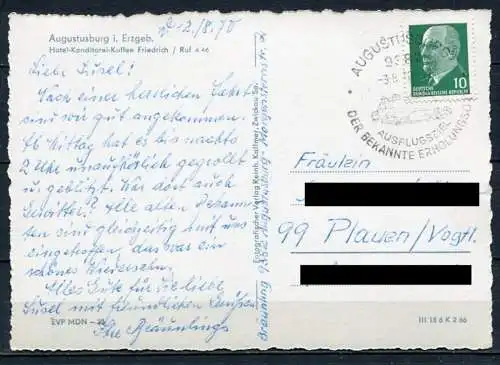 d. 2./8.70
Augustusburg i. Erzgeb.
Hotel-Konditorei-Kaffee Friedrich / Ruf 4 66
Liebe Susel!
Nach einer herrlichen Fahrt
sind wir gut angekommen.
Ab Mittag hat es bis nachts
2 Uhr unaufhörlich gegrollt
u. geblitzt. War dort auch
Gewitter? Alle alten Bekann-
ten sind gleichzeitig mit uns
eingetroffen, das war ein
schönes Wiedersehn.
Alles Gute für Sie liebe
Susel mit freundlichen Grüßen
Ihre Bräunlings
EVP MDN –,20
Fotografischer Verlag Reinh. Kallmer, Zwickau Sa.
Bräunling 9382 Augustusburg
AUGUSTUSBURG
938
-3.8.
AUSFLUGSZIEL
DER BEKANNTE ERHOLUNGS
DEUTSCHE
DEMOKRATISCHE REPUBLIK
10
Fräulein
99 Plauen/Vogtl.
III 18 6 K 2 66